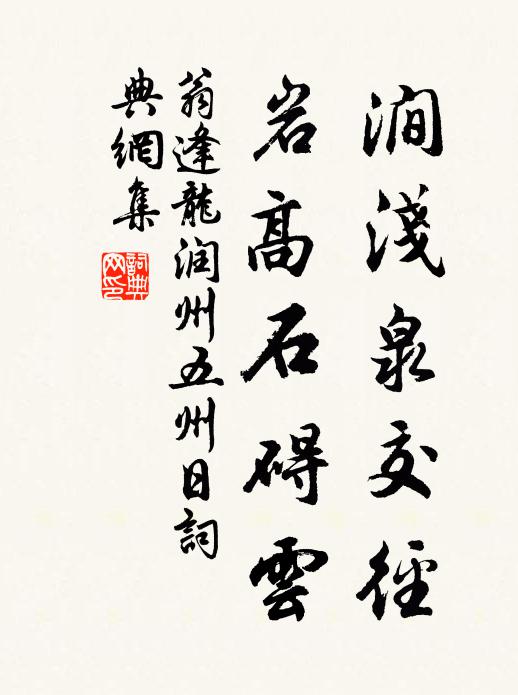 澗淺泉交徑
岩高石碍雲
翁逢龍润州五州日詞
典網集
詞典
网印